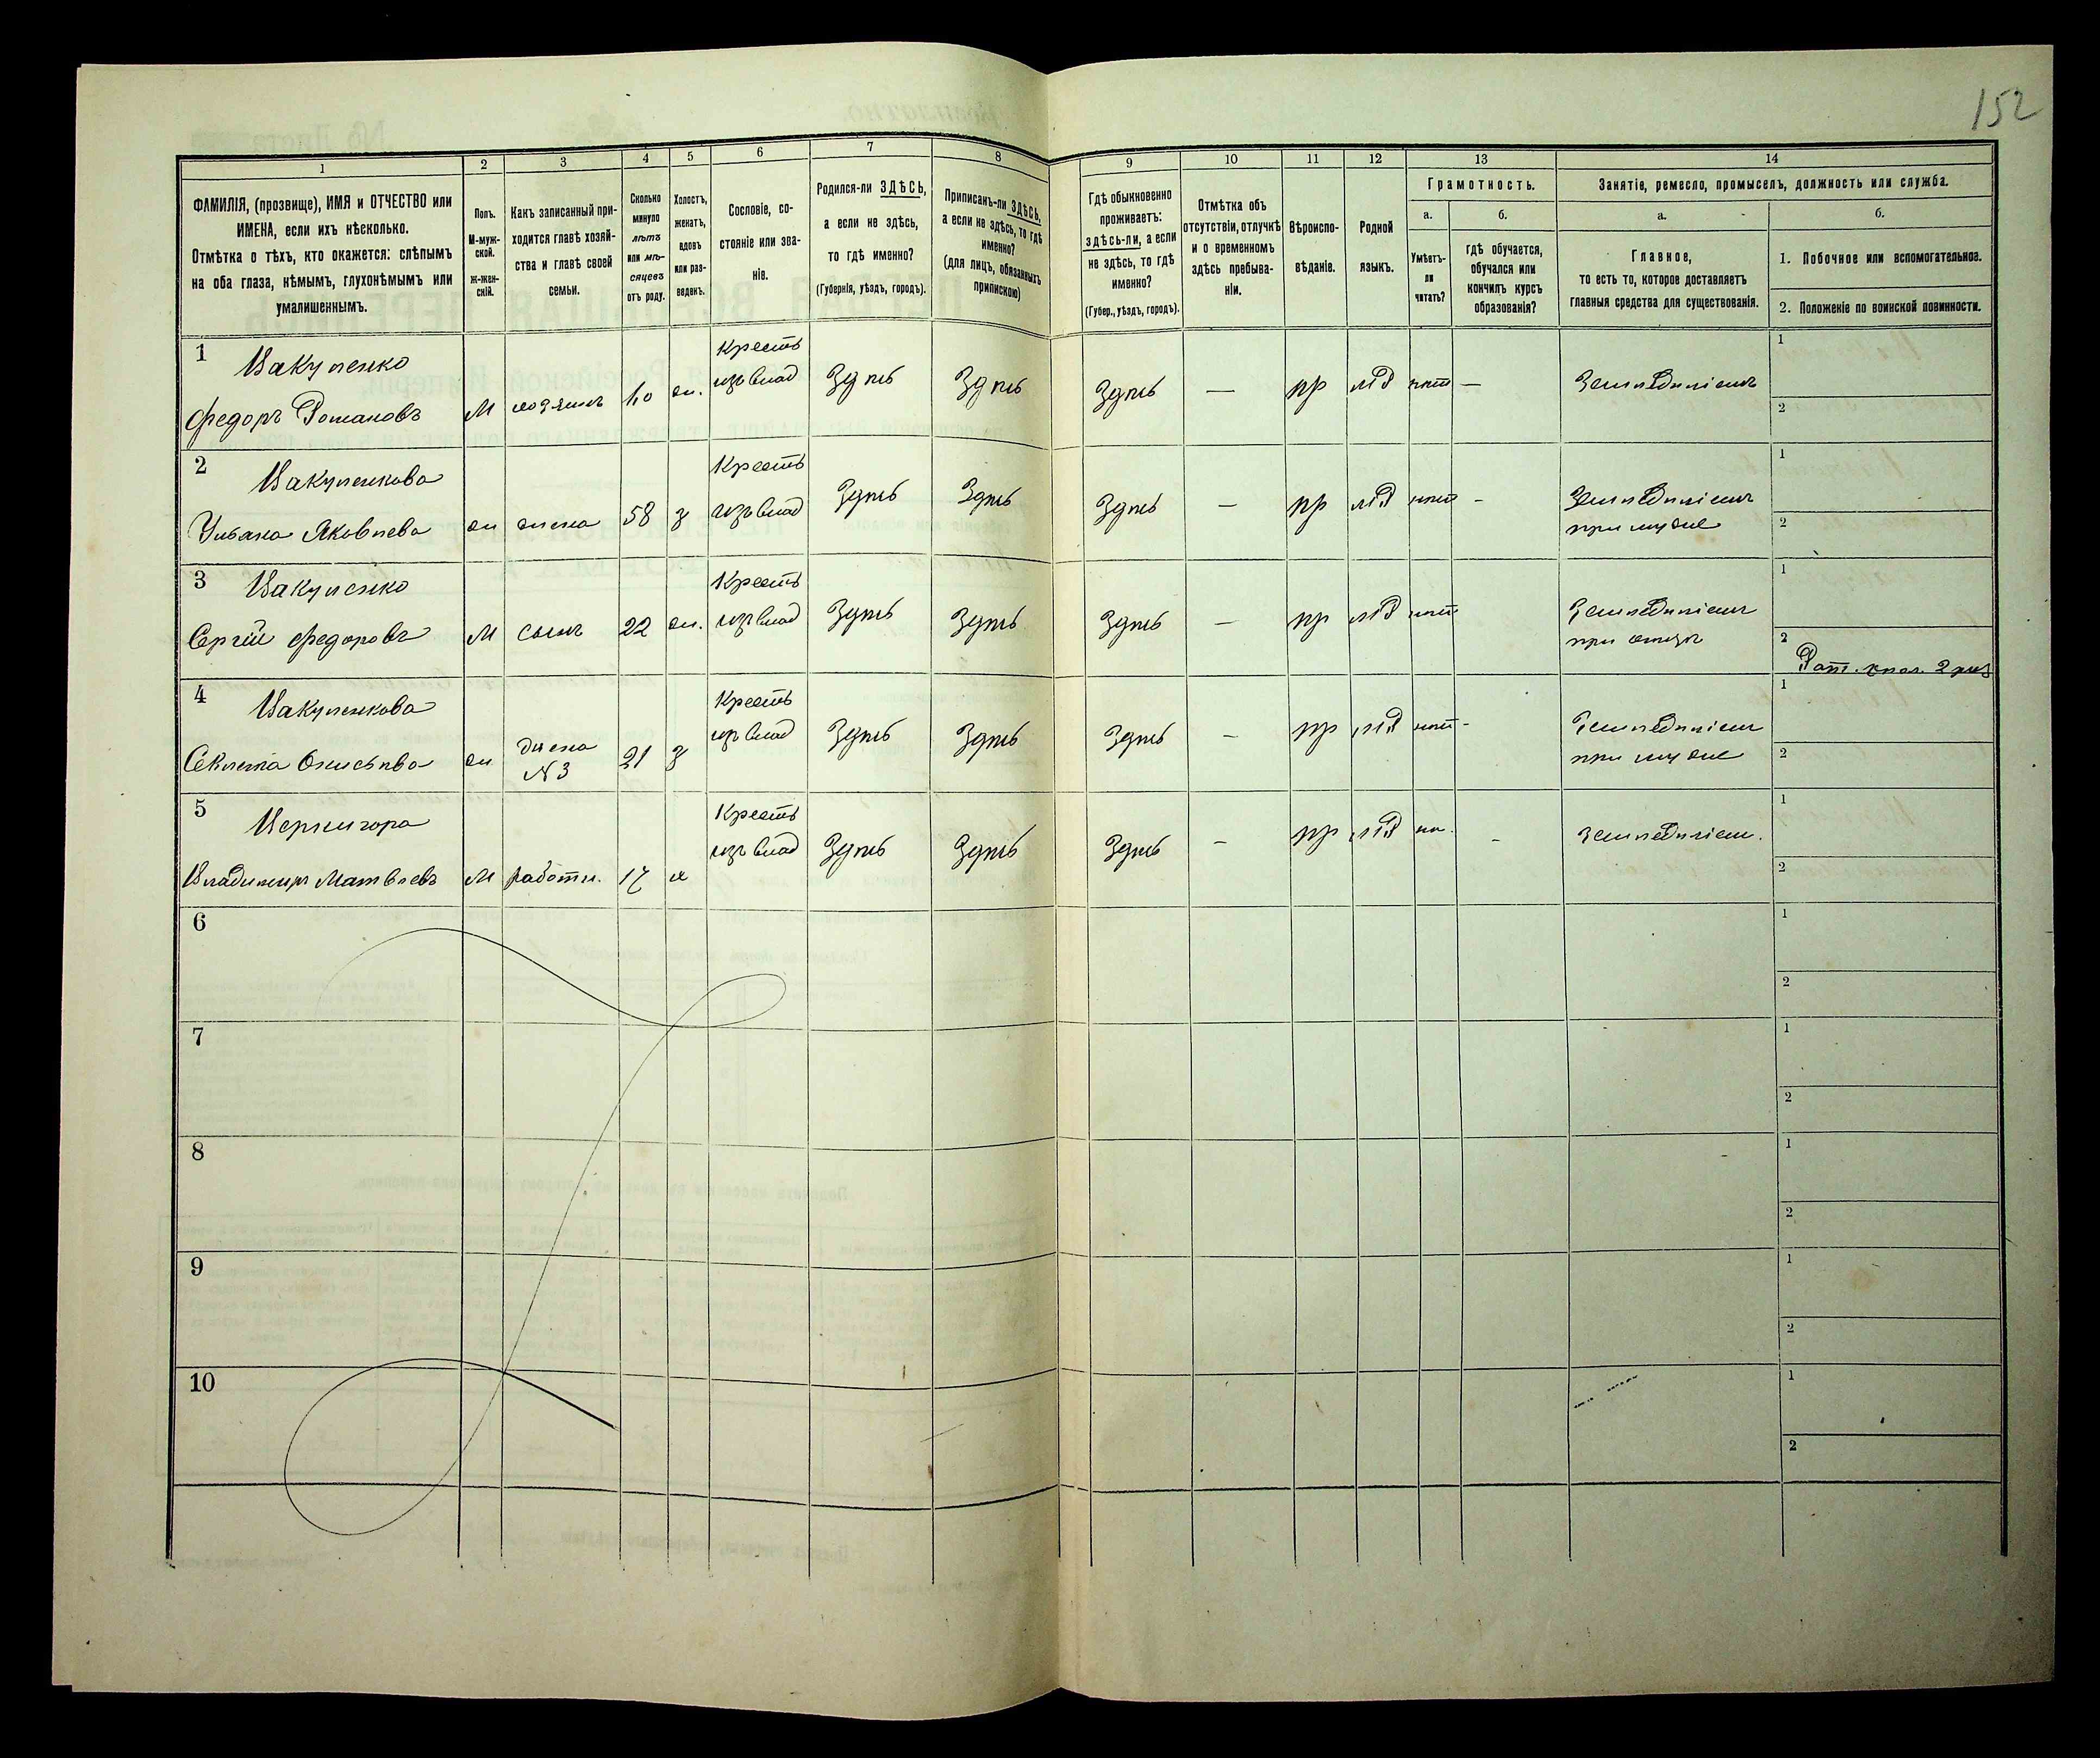 152
1 2 3 4 5 6 7 8 9 10 11 12 13 14
ФАМИЛІЯ, (прозвище), ИМЯ и ОТЧЕСТВО или
ИМЕНА, если ихъ нѣсколько.
Отмѣтка о тѣхъ, кто окажется: слѣпымъ
на оба глаза, нѣмымъ, глухонѣмымъ или
умалишеннымъ.
Полъ.
М-муж-
ской.
Ж-жен-
скій.
Какъ записанный при-
ходится главѣ хозяй-
ства и главѣ своей
семьи.
Сколько
минуло
лѣтъ
или мѣ-
сяцевъ
отъ роду.
Холостъ,
женатъ,
вдовъ
или раз-
веденъ.
Сословіе, со-
стояніе или зва-
ніе.
Родился-ли ЗДѢСЬ,
а если не здѣсь,
то гдѣ именно?
(Губернія, уѣздъ, городъ).
Приписанъ-ли ЗДѢСЬ,
а если не здѣсь, то гдѣ
именно?
(для лицъ, обязанныхъ
припискою)
Гдѣ обыкновенно
проживаетъ:
здѣсь-ли, а если
не здѣсь, то гдѣ
именно?
(Губер., уѣздъ, городъ).
Отмѣтка объ
отсутствіи, отлучкѣ
и о временномъ
здѣсь пребыва-
ніи.
Вѣроиспо-
вѣданіе.
Родной
языкъ.
Грамотность.
а.
Умѣетъ-
ли
читать?
б.
гдѣ обучается,
обучался или
кончилъ курсъ
образованія?
Занятіе, ремесло, промыселъ, должность или служба.
а.
Главное,
то есть то, которое доставляетъ
главныя средства для существованія.
б.
1. Побочное или вспомогательное.
2. Положеніе по воинской повинности.
1 Вакуленко
Федоръ Романовъ М хозяинъ 60 ж. Крестъ изъ влад Здѣсь Здѣсь Здѣсь — пр мр нѣт — Земледѣліемъ 1 2
2 Вакуленкова
Ульяна Яковлева ж жена 58 з Крестъ изъ влад Здѣсь Здѣсь Здѣсь — пр мр нѣт - Земледѣліемъ при мужѣ 1 2
3 Вакуленко
Сергій Федоровъ М сынъ 22 ж. Крестъ изъ влад Здѣсь Здѣсь Здѣсь — пр мр нѣт Земледѣліемъ при отцѣ 1 2
4 Вакуленкова
Секлета ж жена №3 21 з Крестъ изъ влад Здѣсь Здѣсь Здѣсь - пр мр нѣт - Земледѣліем при мужѣ 1 2
5 Вернигора
Владимиръ Матвѣевъ М работн. 17 х Крестъ изъ влад Здѣсь Здѣсь Здѣсь - пр мр - Земледѣліем. 1 2
6 1 2
7 1 2
8 1 2
9 1 2
10 1 2